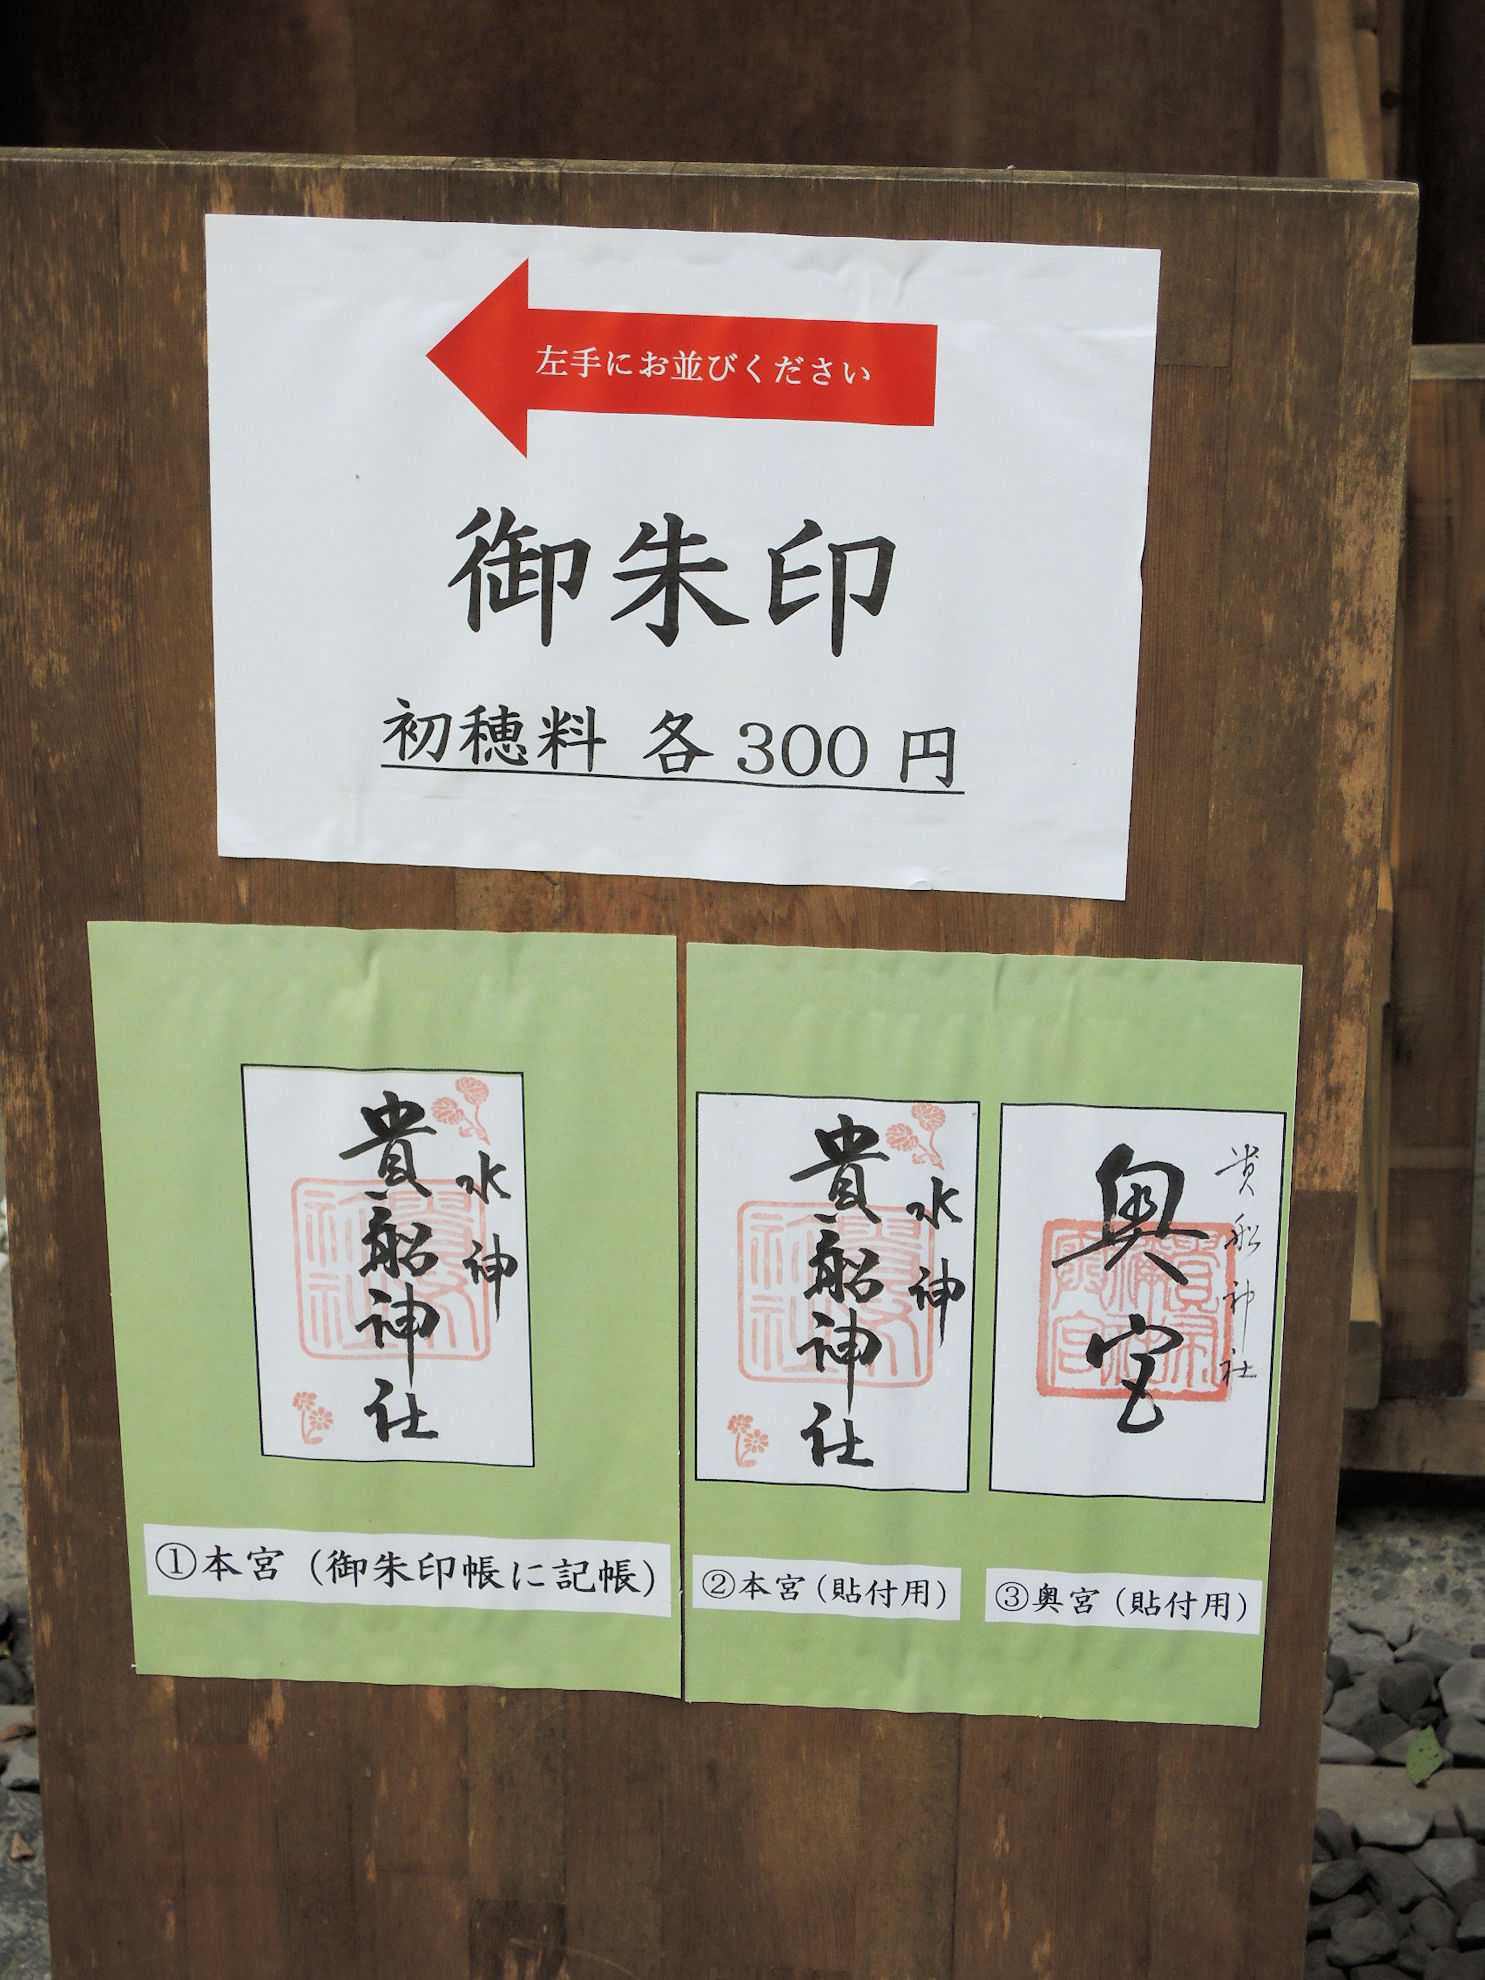 左手にお並びください
御朱印
初穂料 各300円
水神
貴船神社
①本宮（御朱印帳に記帳）
水神
貴船神社
②本宮（貼付用）
貴船神社
奥宮
③奥宮（貼付用）